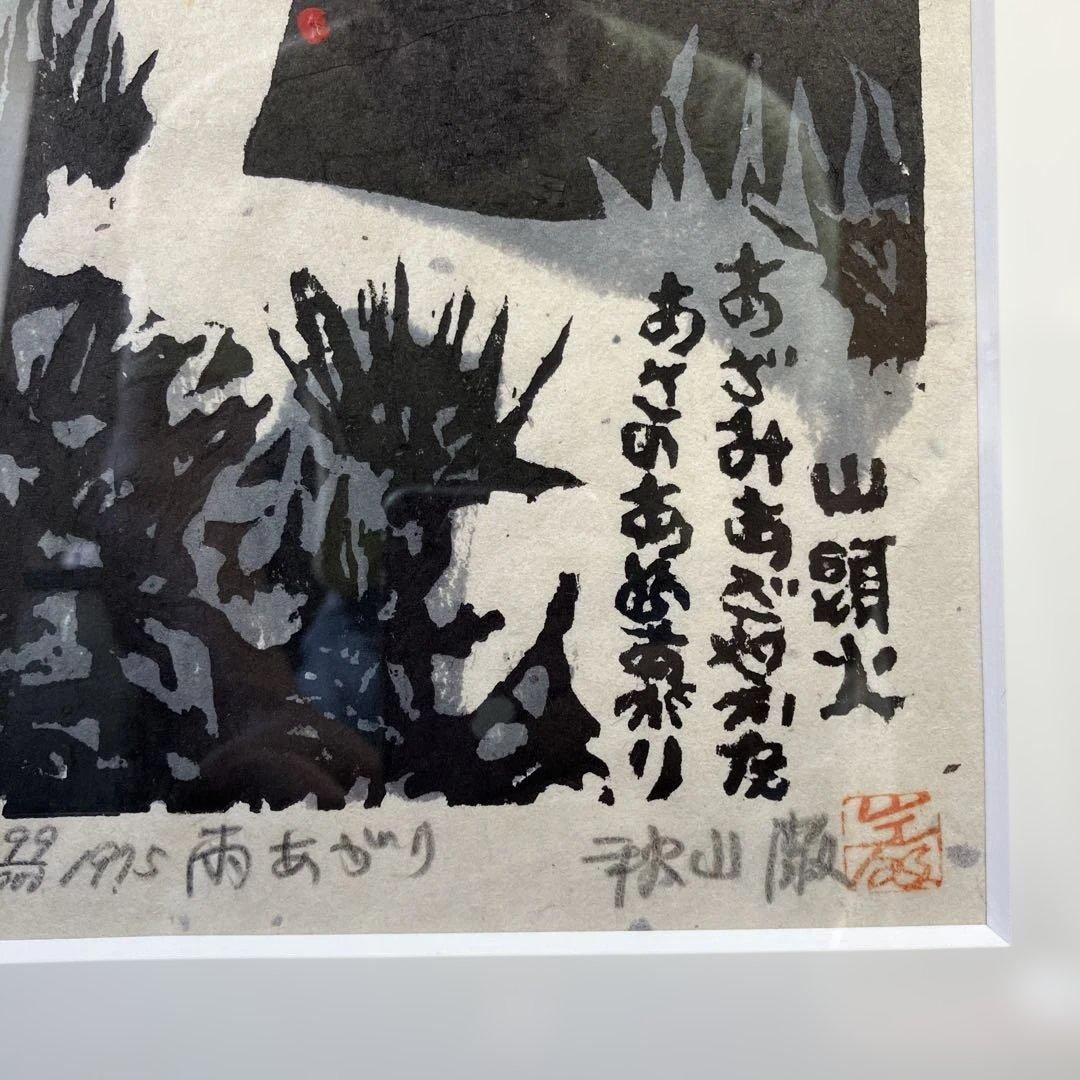 山頭火
あざみあざやかな
あさのあめあがり
1975 雨あがり 秋山巌